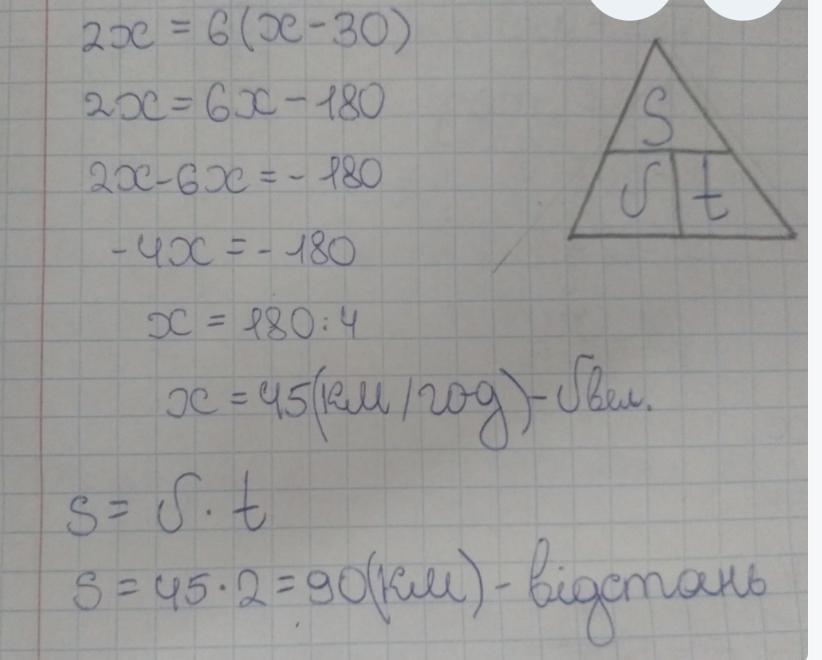 2x = 6(x - 30)
2x = 6x - 180
2x - 6x = - 180
- 4x = - 180
x = 180 : 4
x = 45 (км/год) - V вел.
S = V · t
S = 45 · 2 = 90 (км) - відстань
S
V t